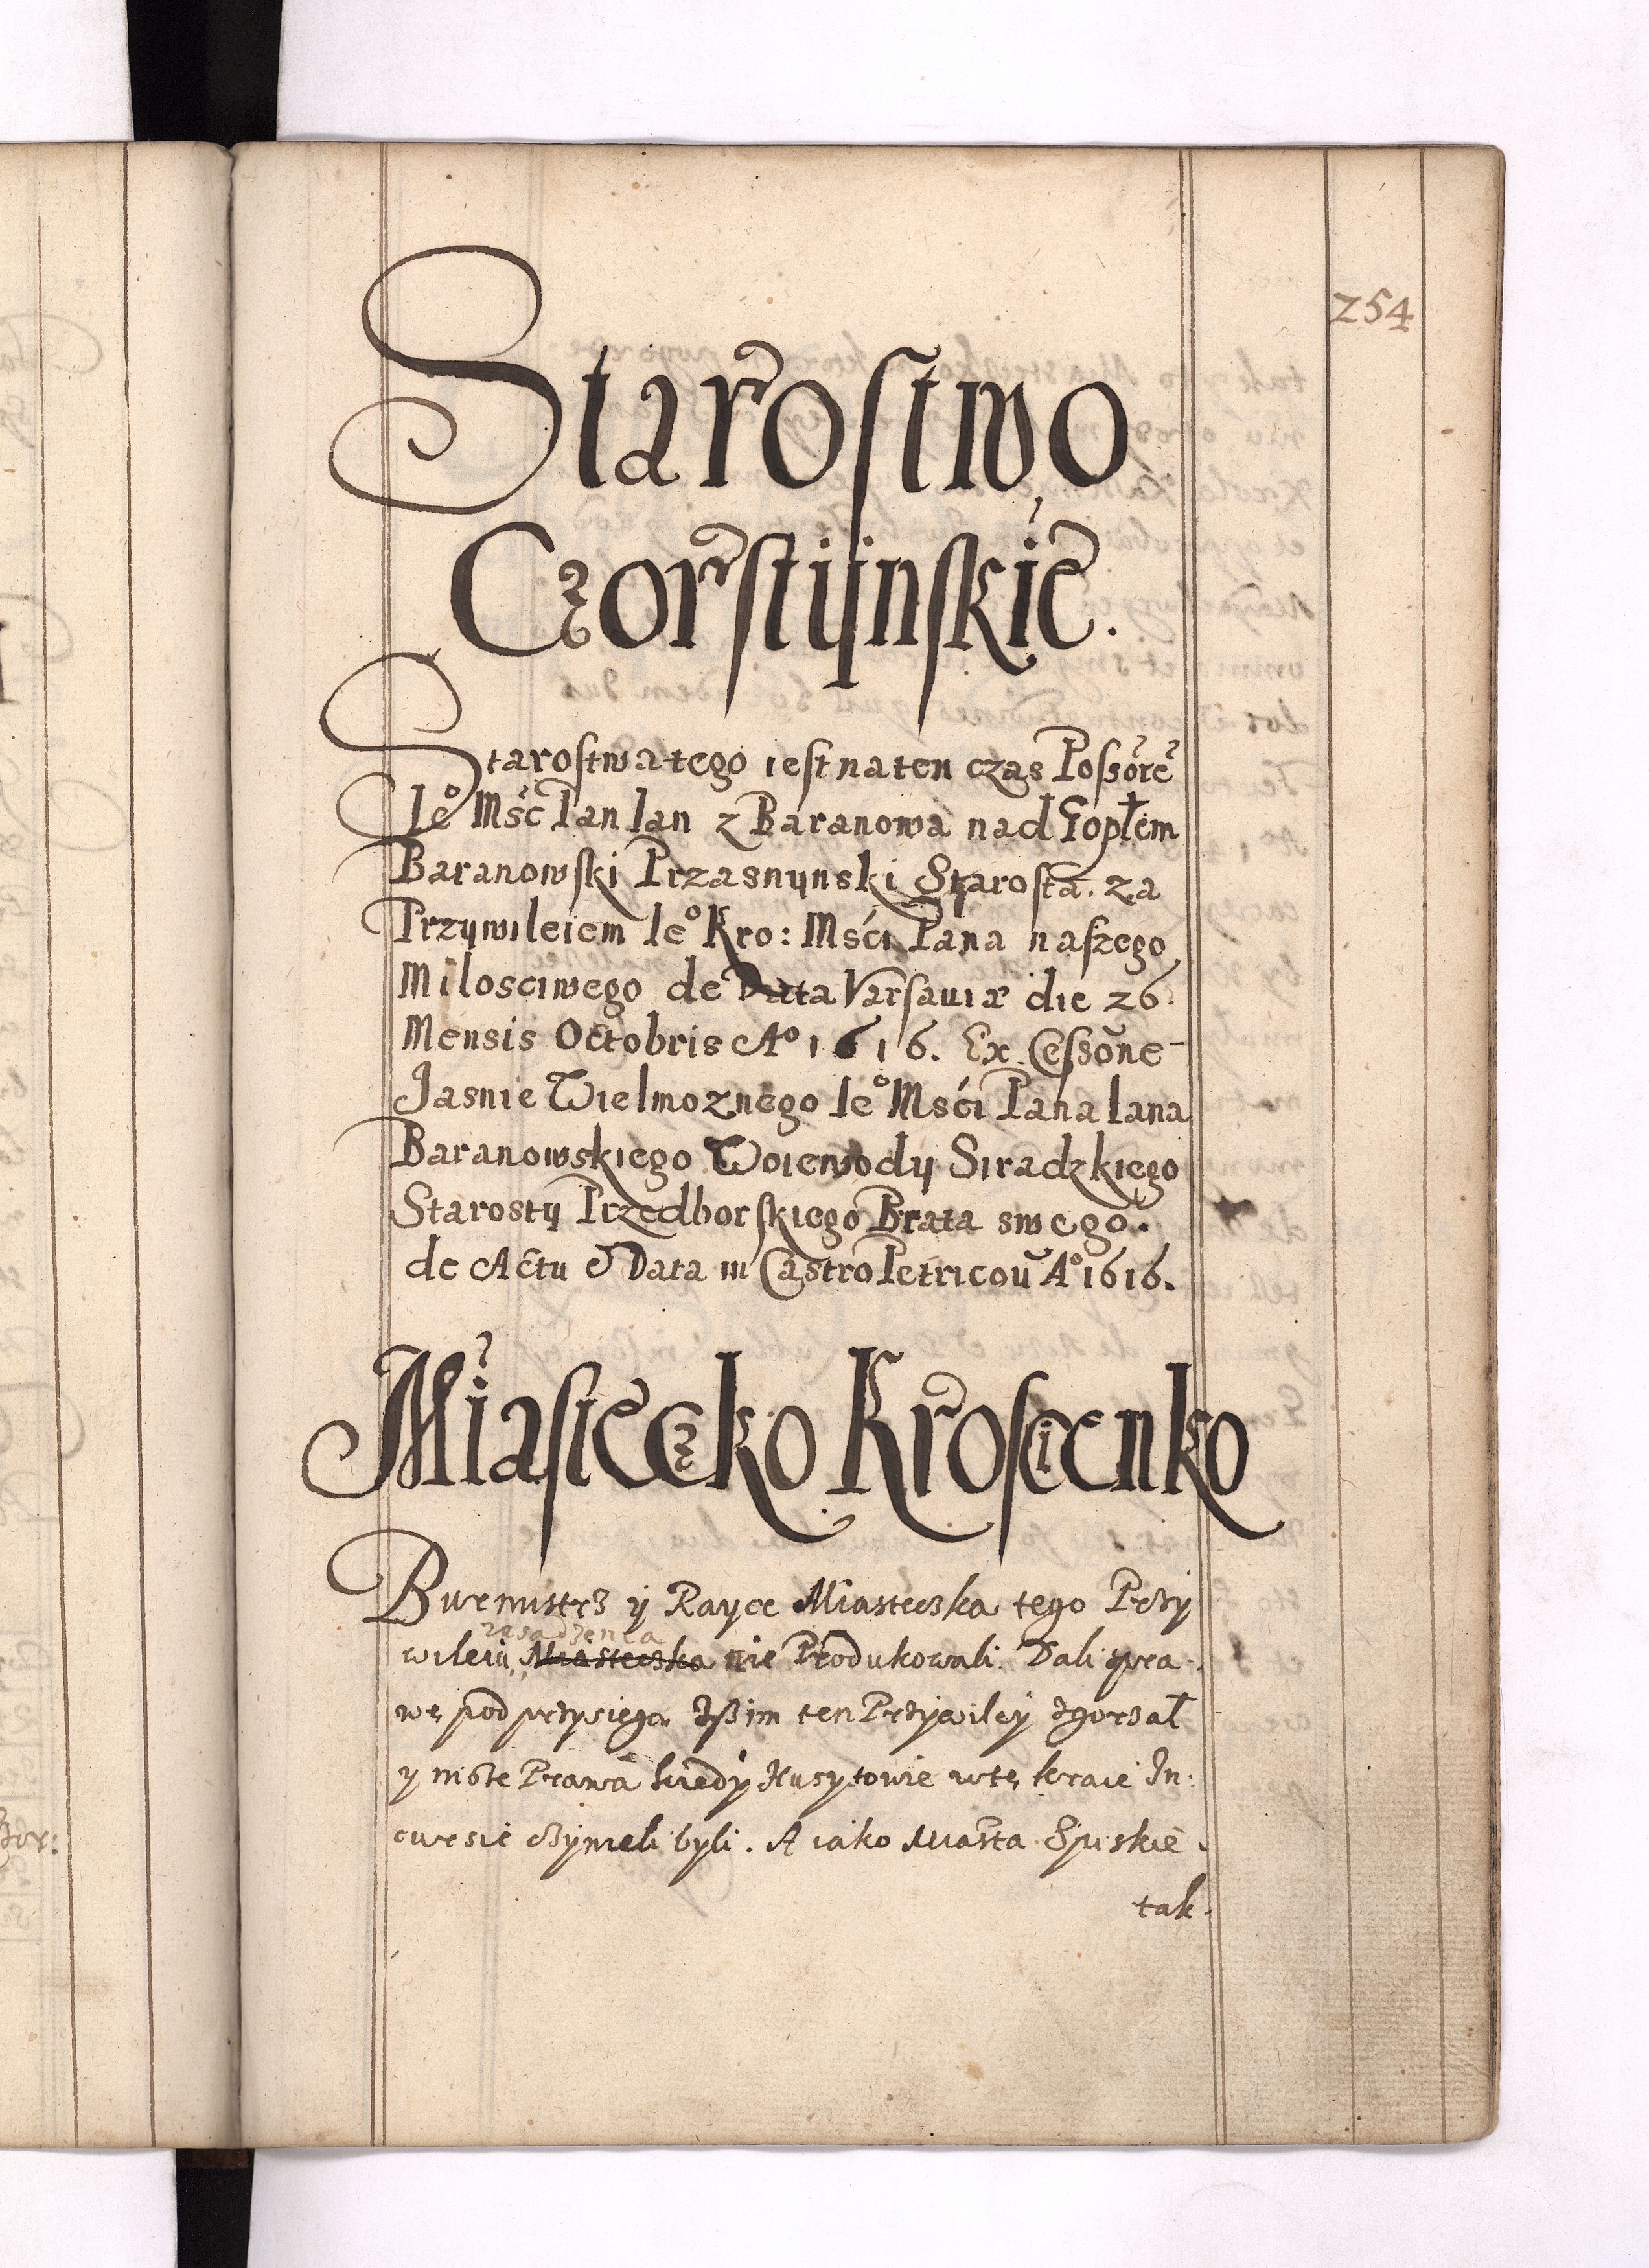 254
Starostwo
Czorstijnskie.
Starostwa tego iest na ten czas Possore
Ie° Mść Pan Ian z Baranowa nad Gopłem
Baranowski Przasnijnski Starosta. za
Przijwileiem Ie° Kro: Mści Pana naszego
Milosciwego de Data Varsauiæ die 26.
Mensis Octobris A° 1616. Ex Cessone
Jasnie Wielmoznego Ie° Mści Pana Iana
Baranowskiego Woiewodij Siradzkiego
Starostij Przedborskiego Brata swego.
de Actu & Data in Castro Petricou A° 1616.
Miasteczko Krosciecnko
Burmistrz ij Rayce Miasteczka tego Przy
zasadzenia
wileiu, Miasteczka nie Produkowali. Dali spra-
wę pod przysięgą Izß im ten Przywiley zgorzał
y insze Prawa kiedy Husytowie w tę kraie In:
cursie czynieli byli. A iako Miasta Spiskie.
tak.
zor: